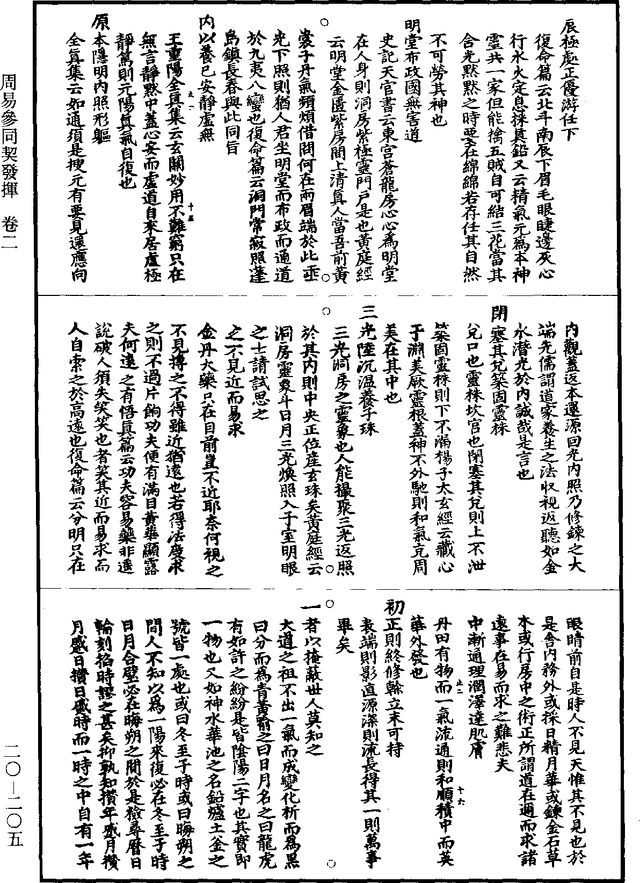 周易參同契發揮　卷二
二〇—二〇五
辰極處正優游任下
復命篇云北斗南辰下眉毛眼睫邊灰心
行水火定息採真鉛又云精氣元為本神
靈共一家但能擒五賊自可結三花當其
合光默默之時要在綿綿若存任其自然
不可勞其神也
明堂布政國無害道
史記天官書云東宮蒼龍房心心為明堂
在人身則洞房紫極靈門戶是也黃庭經
云明堂金匱紫房間上清真人當吾前黃
裳子丹氣頻煩借問何在兩眉端於此垂
光下照則猶人君坐明堂而布政而通道
於九夷八蠻也復命篇云洞門常寂照蓬
島鎮長春與此同旨
內以養己安靜虛無
王重陽全真集云玄關妙用不難窮只在
無言靜默中蓋心安而虛道自來居虛極
靜篤則元陽真氣自復也
原本隱明內照形軀
全真集云如通須是搜元有要見還應向
內觀蓋返本還源回光內照乃修鍊之大
端先儒謂道家養生之法收視返聽如金
水潛光於內誠哉是言也
閉塞其兌築固靈株
兌口也靈株坎宮也閉塞其兌則上不泄
築固靈株則下不漏楊子太玄經云藏心
于淵美厥靈根蓋神不外馳則和氣充周
美在其中也
三光陸沉溫養子珠
三光洞房之靈象也人能攝聚三光返照
於其內則中央正位產玄珠矣黃庭經云
洞房靈象斗日月三光煥照入子室明眼
之士請試思之
之不見近而易求
金丹大藥只在目前豈不近耶奈何視之
不見搏之不得雖近猶遠也若得法度求
之則不過片餉功夫便有滿目黃華顯露
夫何遠之有悟真篇云功夫容易藥非遙
說破人須失笑笑也者笑其近而易求而
人自索之於高遠也復命篇云分明只在
眼睛前自是時人不見天惟其不見也於
是舍內務外或採日精月華或鍊金石草
木或行房中之術正所謂道在邇而求諸
遠事在易而求之難悲夫
中漸通理潤澤達肌膚
丹田有物而一氣流通則和順積中而英
華外發也
初正則終修榦立末可持
表端則影直源深則流長得其一則萬事
畢矣
一者以掩蔽世人莫知之
大道之祖不出一氣而成變化析而為黑
白分而為青黃喻之曰日月名之曰龍虎
有如許之紛紛是皆陰陽二字也其實即
一物也又如神水華池之名鉛爐土釜之
號皆一處也或曰冬至子時或曰晦朔之
間人不知以為一陽來復必在冬至子時
日月合璧必在晦朔之間於是檢尋曆日
輪刻掐時謬之甚矣抑孰知攢年蹙月攢
月蹙日攢日蹙時而一時之中自有一年